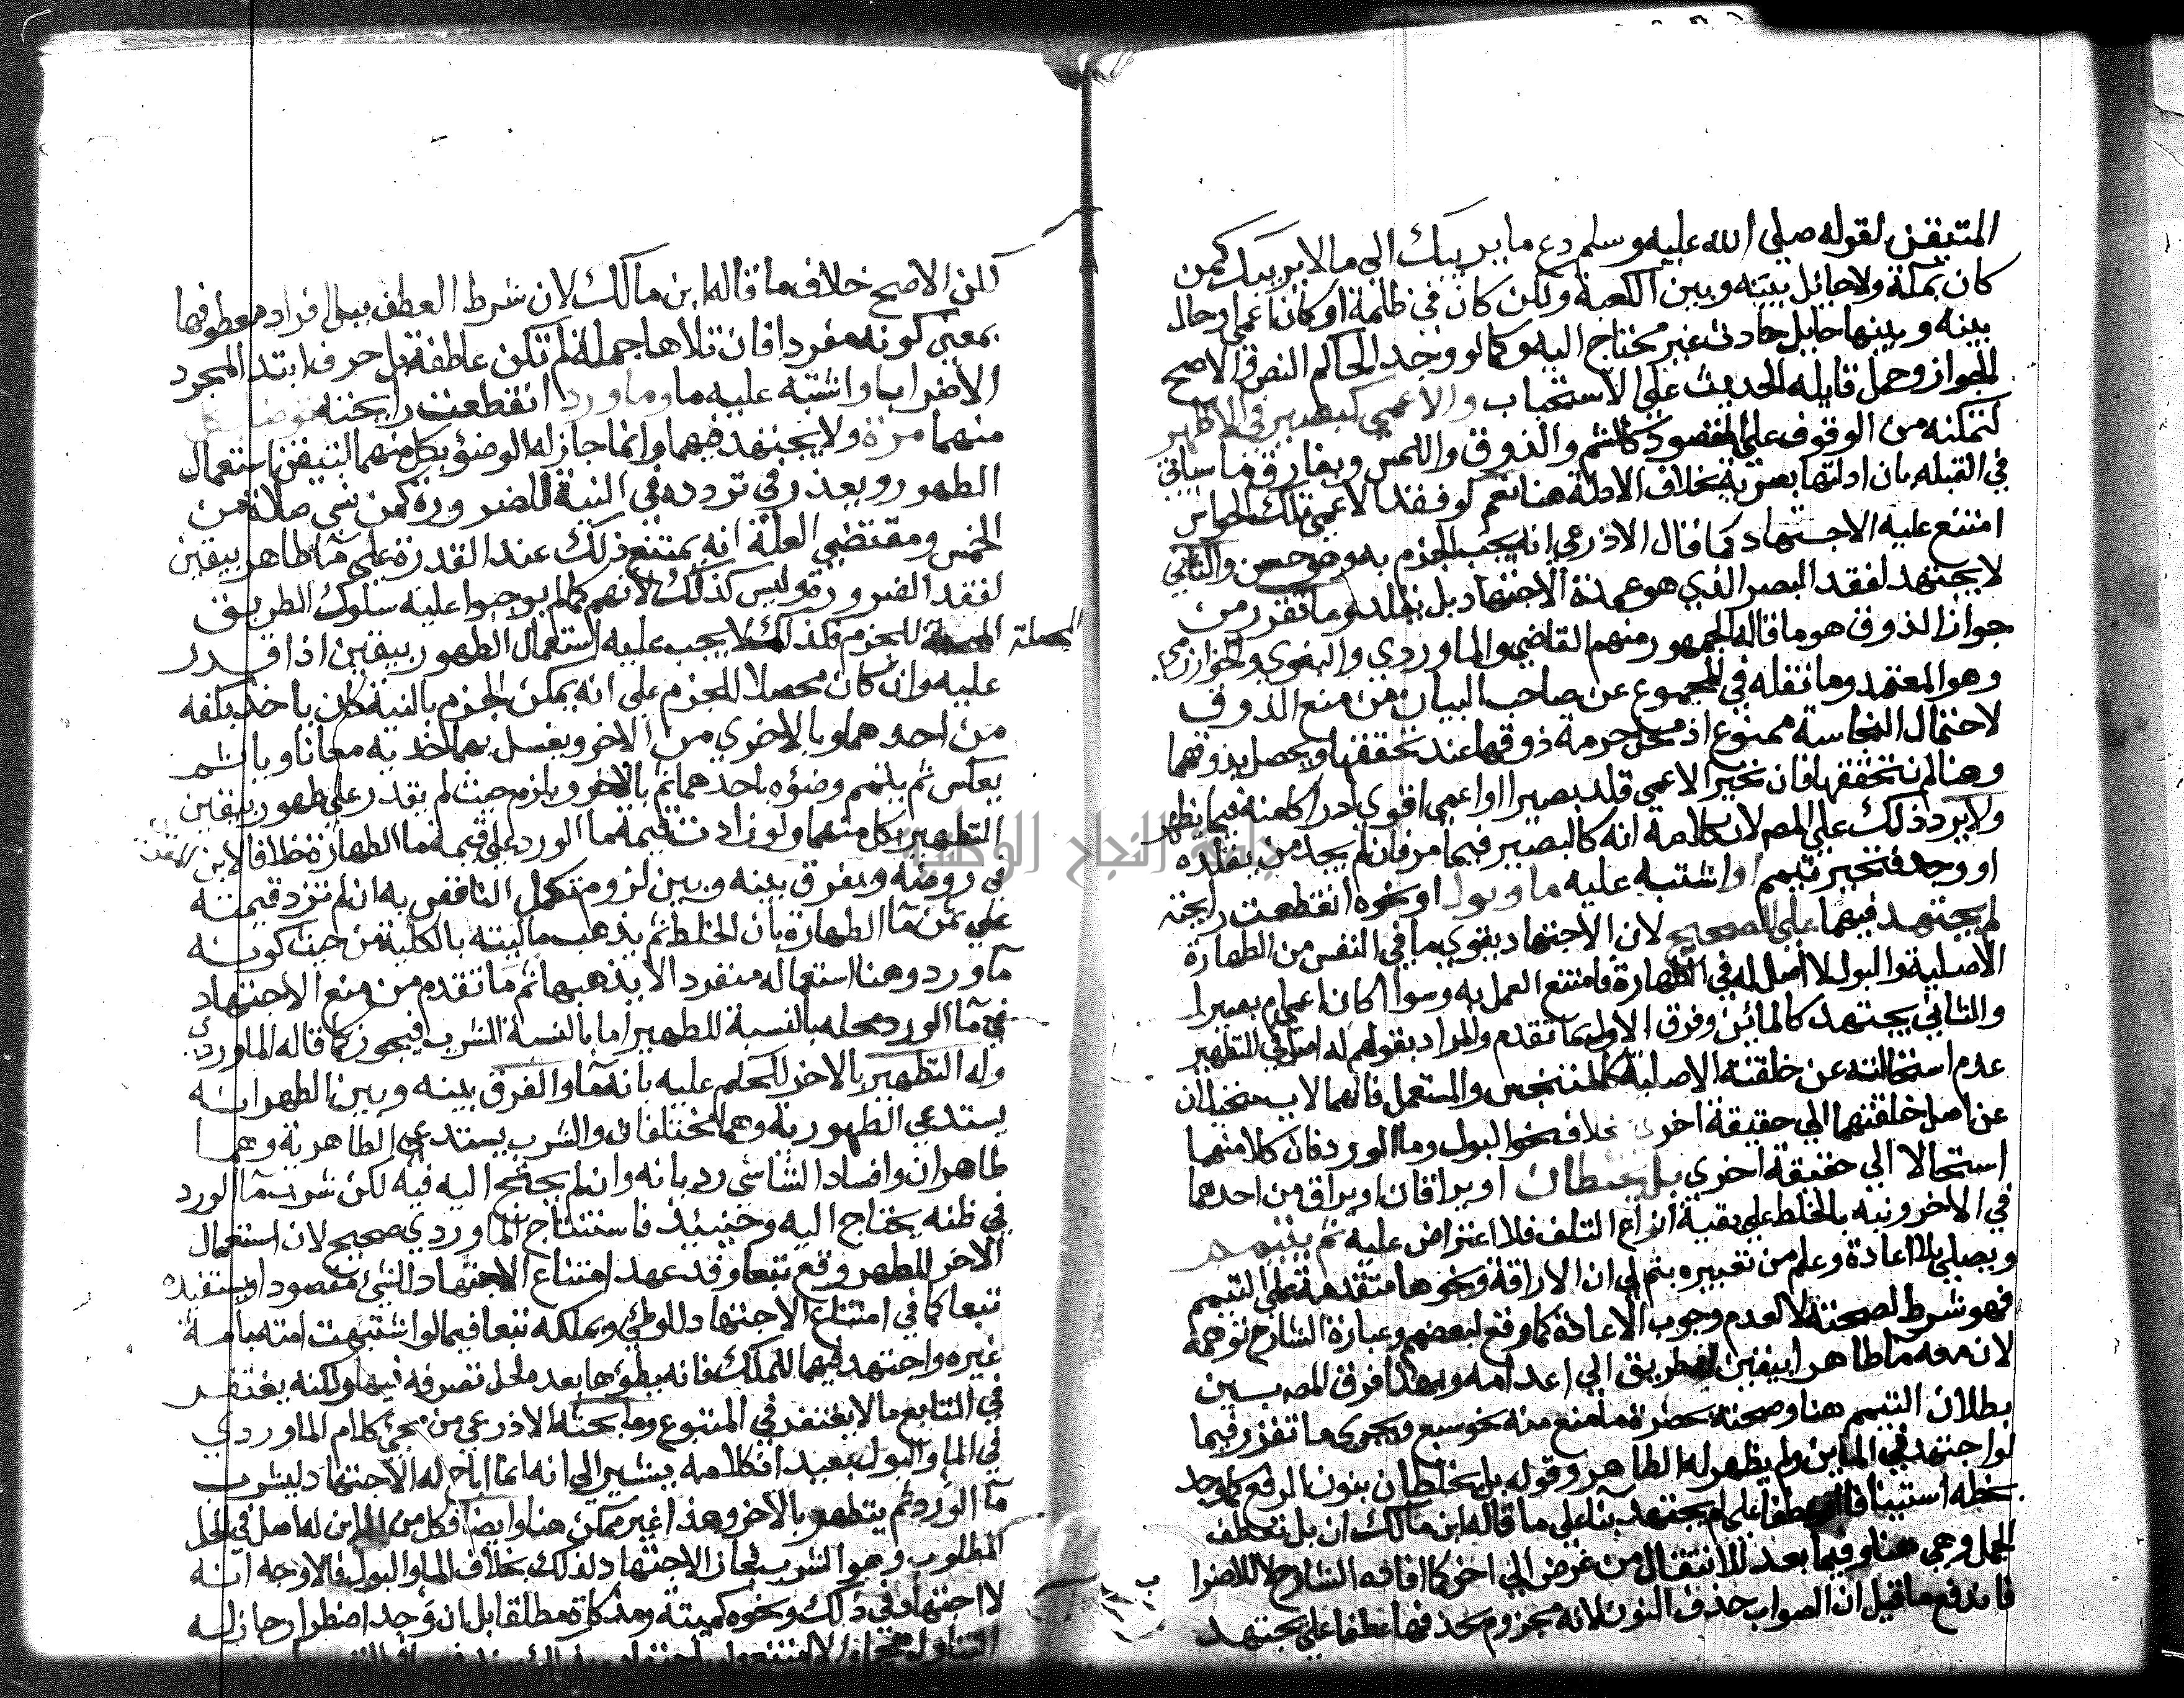 المتيقن لقوله صلي الله عليه وسلم دع ما يريبك الي ما لا يريبك كمن
كان بمكة ولا حائل بينه وبين الكعبة ولكن كان في ظلمة او كان اعمي او حال
بينه وبينها حايل حادث غير محتاج اليه وكما لو وجد الحاكم النص والاصح
الجواز وحمل قايله الحديث علي الاستحباب والاعمي كبصير في الاظهر
لتمكنه من الوقوف علي المقصود كالشم والذوق واللمس ويفارق ما سياتي
في القبلة بان ادلتها بصرية بخلاف الادلة هنا نعم لو فقد الاعمي تلك الحواس
امتنع عليه الاجتهاد كما قال الاذرعي انه يجب الجزم به وهو حسن والثاني
لا يجتهد لفقد البصر الذي هو عمدة الاجتهاد بل يقلد وما تقرر من
جواز الذوق هو ما قاله الجمهور منهم القاضي والماوردي والبغوي والخوارزمي
وهو المعتمد وما نقله في المجموع عن صاحب البيان من منع الذوق
لاحتمال النجاسة ممنوع اذ محل حرمة ذوقها عند تحققها ويحصل بذوقهما
وهنا لم نتحققها فان تحير الاعمي قلد بصيرا او اعمي اقوي ادراكا منه فيما يظهر
ولا يرد ذلك علي المص لان كلامه انه كالبصير فيما مر فان لم يجد من يقلده
او وجده فتحير تيمم او اشتبه عليه ما وبول او نحوه انقطعت رايحته
لم يجتهد فيهما علي الصحيح لان الاجتهاد يقوي ما في النفس من الطهارة
الاصلية والبول لا اصل له في الطهارة فامتنع العمل به وسوا اكان اعمي ام بصيرا
والثاني يجتهد كالمائين وفرق الاول بما تقدم والمراد بقولهم له اصل في التطهير
عدم استحالته عن خلقته الاصلية كالمتنجس والمستعمل فانهما لا يستحيلان
عن اصل خلقتهما الي حقيقة اخري بخلاف نحو البول وما الورد فان كلا منهما
استحالا الي حقيقة اخري بل يخلطان او يراقان او يراق من احدهما
في الاخر ونبه بالخلط علي بقية انواع التلف فلا اعتراض عليه ثم يتيمم
ويصلي بلا اعادة وعلم من تعبيره بثم الي ان الاراقة ونحوها متقدمة علي التيمم
فهو شرط لصحته لا لعدم وجوب الاعادة كما وقع لبعضهم وعبارة الشارح توهمه
لان معه ما طاهرا بيقين له طريق الي اعدامه وبهذا فرق المص بين
بطلان التيمم هنا وصحته بحضرة ما منع منه نحو سبع ويجري ما تقرر فيما
لو اجتهد في الماين ولم يظهر له الطاهر وقوله بل يخلطان بنون الرفع كما وجد
بخطه استينافا او عطفا علي لم يجتهد بنا علي ما قاله ابن مالك ان بل تعطف
الجمل وهي هنا وفيما بعد للانتقال من غرض الي اخر كما افاده الشارح لا للاضرا
فاندفع ما قيل ان الصواب حذف النون لانه مجزوم بحذفها عطفا علي يجتهد
لكن الاصح خلاف ما قاله ابن مالك لان شرط العطف ببل افراد معطوفها
بمعني كونه مفردا فان تلاها جملة لم تكن عاطفة بل حرف ابتدا لمجرد
الاضراب او اشتبه عليه ما وما ورد انقطعت رايحته توضا بكل
منهما مرة ولا يجتهد فيهما وانما جاز له الوضؤ بكل منهما لتيقن استعمال
الطهور ويعذر في تردده في النية للضرورة كمن نسي صلاة من
الخمس ومقتضي العلة انه يمتنع ذلك عند القدرة علي ما طاهر بيقين
لفقد الضرورة وليس كذلك لانهم كما لم يوجبوا عليه سلوك الطريق
المحصلة للجزم فكذلك لا يجب عليه استعمال الطهور بيقين اذا قدر
عليه وان كان محصلا للجزم علي انه يمكن الجزم بالنية كان ياخذ بكفه
من احدهما وبالاخري من الاخر ويغسل بهما خديه معا ناويا ثم
يعكس ثم يتمم وضؤه باحدهما ثم بالاخر ويلزم حيث لم يقدر علي طهور بيقين
التطهير بكل منهما ولو زادت قيمة ما الورد علي قيمة ما الطهارة خلافا لابن المقري
في روضه ويفرق بينه وبين لزوم تكميل الناقص به ان لم تزد قيمته
علي ثمن ما الطهارة بان الخلط ثم يذهب ماليته بالكلية من حيث كونه
ما ورد وهنا استعماله منفردا لا يذهبها ثم ما تقدم من منع الاجتهاد
في ما الورد محله بالنسبة للتطهير اما بالنسبة للشرب فيجوز كما قاله الماوردي
وله التطهير بالاخر للحكم عليه بانه ما والفرق بينه وبين الطهر انه
يستدعي الطهورية وهما مختلفان والشرب يستدعي الطاهرية وهما
طاهران وافساد الشاشي رد بانه وان لم يحتج اليه فيه لكن شرب ما الورد
في ظنه يحتاج اليه وحينئذ فاستنتاج الماوردي صحيح لان استعمال
الاخر للطهر وقع تبعا وقد عهد امتناع الاجتهاد للشئ مقصودا ويستفيده
تبعا كما في امتناع الاجتهاد للوطئ ويملكه تبعا فيما لو اشتبهت امته بامة
غيره واجتهد فيهما للملك فانه يطؤها بعد لحل تصرفه فيها ولكنه يغتفر
في التابع ما لا يغتفر في المتبوع وما بحثه الاذرعي من مجئ كلام الماوردي
في الما والبول بعيد اذ كلامه يشير الي انه انما اباح له الاجتهاد ليشرب
ما الورد ثم يتطهر بالاخر وهذا غير ممكن هنا وايضا فكل من الماين له اصل في الحل
المطلوب وهو الشرب فجاز الاجتهاد لذلك بخلاف الما والبول فالاوجه انه
لا اجتهاد في ذلك ونحوه كميتة ومذكاة مطلقا بل ان وجد اضطرار جاز له